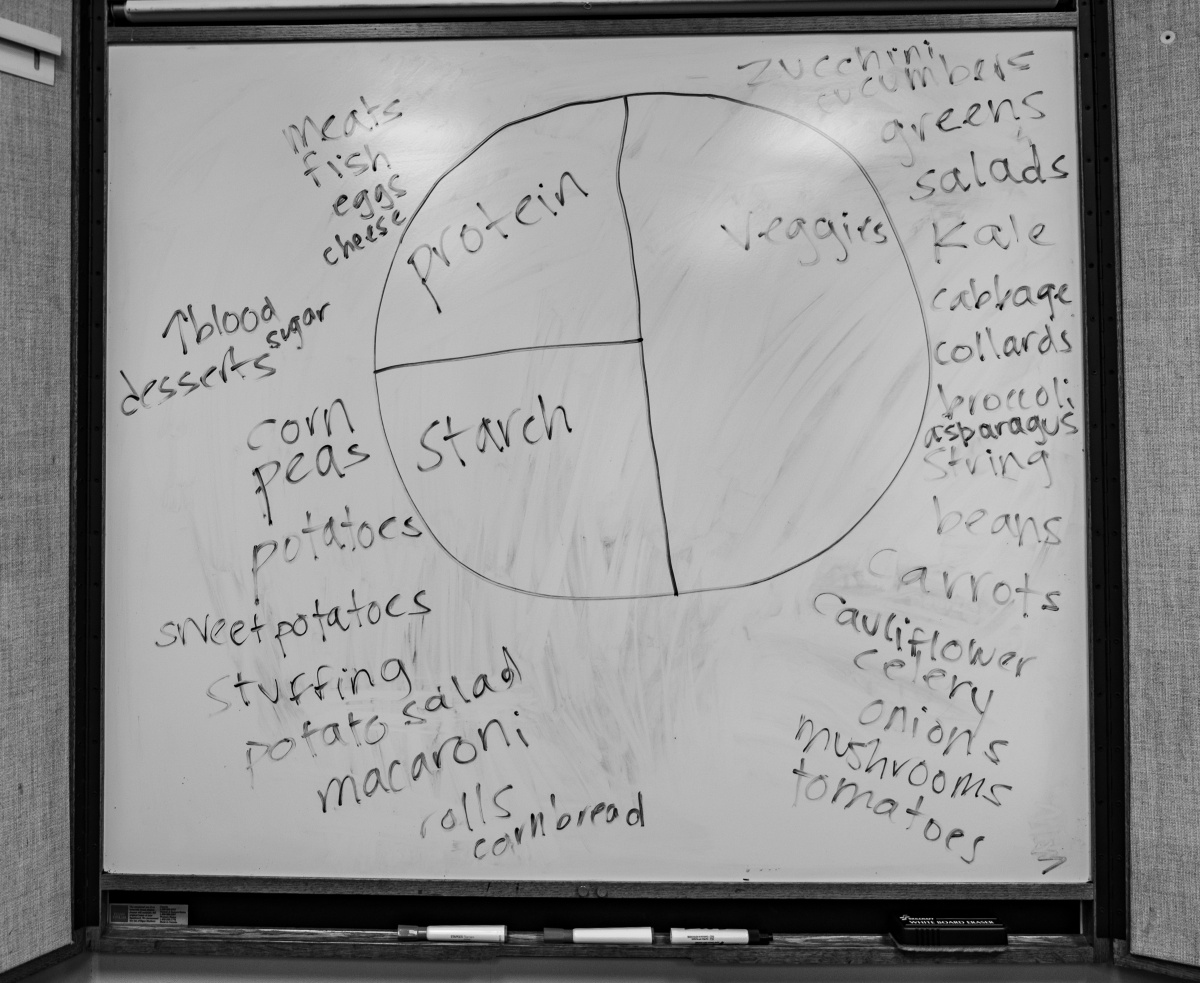 meats
fish
eggs
cheese
protein
↑blood
sugar
desserts
Starch
corn
peas
potatoes
sweet potatoes
stuffing
potato salad
macaroni
rolls
cornbread
Veggies
zucchini
cucumbers
greens
salads
Kale
cabbage
collards
broccoli
asparagus
String
beans
Carrots
Cauliflower
celery
onions
mushrooms
tomatoes
WHITE BOARD ERASER